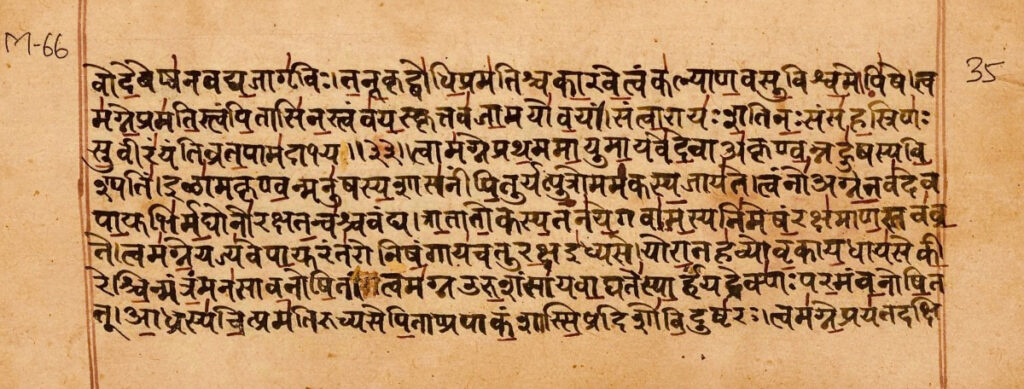 M-66
वोदेवेष्वनवद्यजागृविः।तनूकृद्बोधिप्रमतिश्चकारवेत्वंकल्याणवसुविश्वमोपिषे।त्व
मग्नेप्रमतिस्त्वंपितासिनस्त्वंवयस्कृत्तवजामयोवयं।संत्वारायःशतिनःसंसहस्रिणः
सुवीरंयंतिव्रतपामदाभ्य॥३३॥त्वामग्नेप्रथममायुमायवेदेवाअकृण्वन्नहुषस्यवि
श्पतिं।इळामकृण्वन्मनुषस्यशासनींपितुर्यत्पुत्रोममकस्यजायते।त्वंनोअग्नेतवदेव
पायुभिर्मघोनोरक्षतन्वश्चवंद्य।त्रातातोकस्यतनयेगवामस्यनिमेषंरक्षमाणस्तवव्र
ते।त्वमग्नेयज्यवेपायुरंतरोनिषंगायचतुरक्षइध्यसे।योरातहव्योवृकायधायसेकी
रेश्चिन्मंत्रंमनसावनोषितं।त्वमग्नउरुशंसायवाघतेस्पार्हंयद्रेक्णःपरमंवनोषित
त्।आध्रस्यचित्प्रमतिरुच्यसेपिताप्रपाकंशास्सिप्रदिशोविदुष्टरः।त्वमग्नेप्रयतदक्षि
35